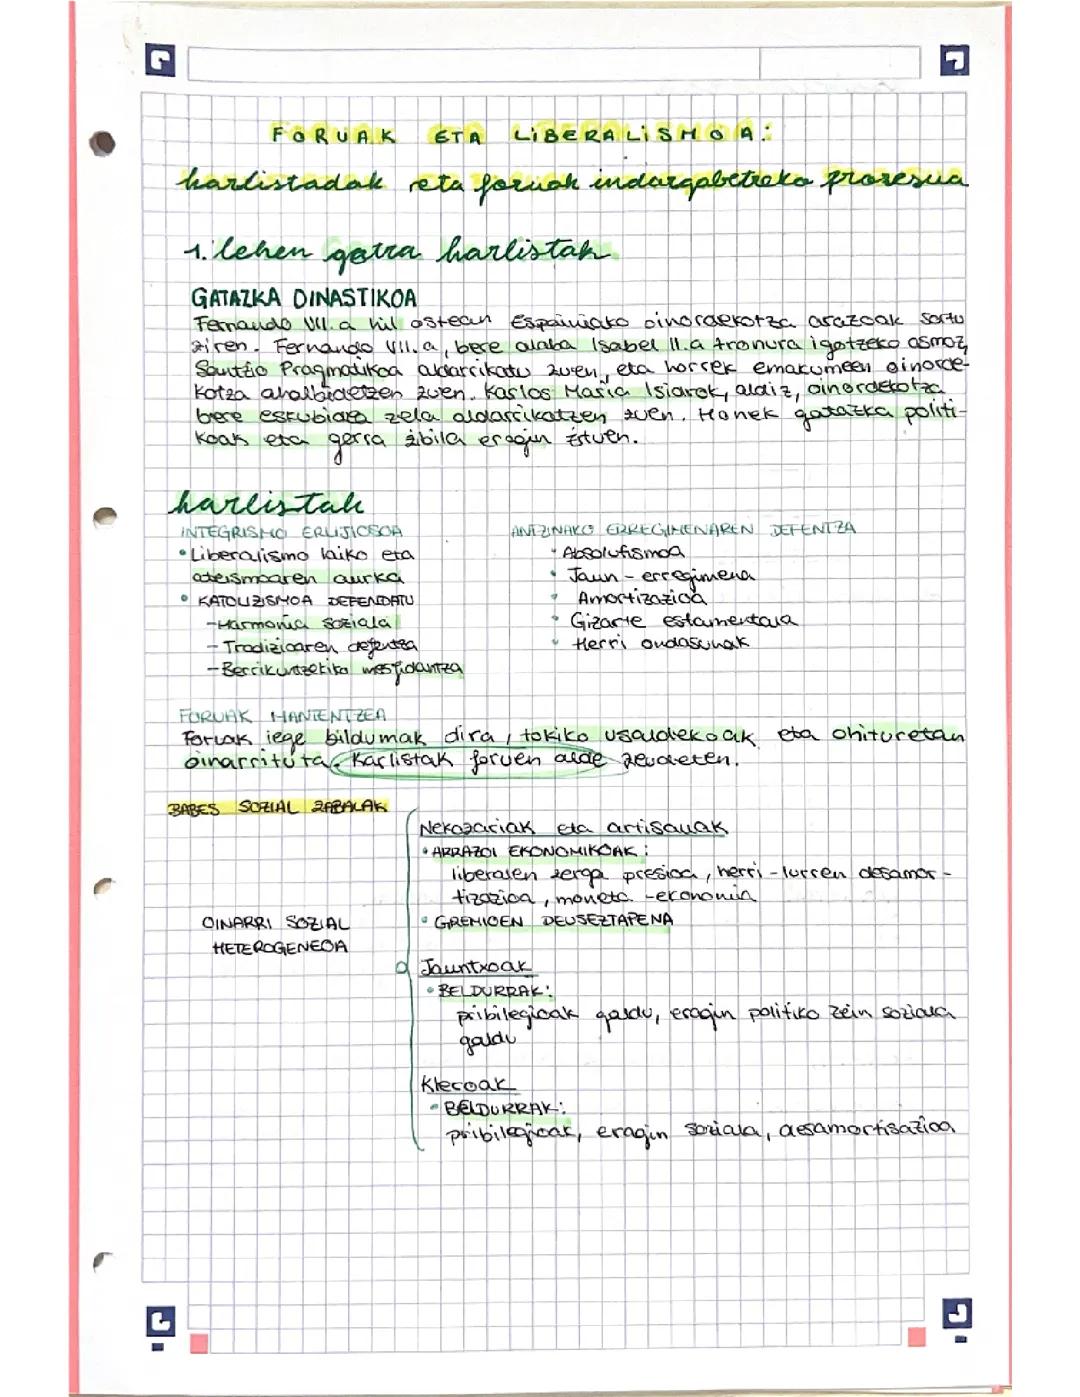 FORUAK ETA LIBERALISMOA:
karlistadak eta foruak indargabetzeko prozesua
1. lehen gatra karlistak
GATAZKA DINASTIKOA
Fernando VII.a hil ostean Espainiako oinordekotza arazoak sortu
ziren. Fernando VII.a, bere alaba Isabel II.a tronura igotzeko asmoz,
Santzio Pragmatikoa aldarrikatu zuen, eta horrek emakumeen oinorde-
kotza ahalbidetzen zuen. Karlos Maria Isiarok, aldiz, oinordekotza
bere eskubidea zela aldarrikatzen zuen. Honek gatazka politi-
koak eta gerra zibila eragin zituen.
karlistak
INTEGRISMO ERLIJIOSOA
• Liberalismo laiko eta
ateismoaren aurka
• KATOLIZISMOA DEFENDATU
- Harmonia soziala
- Tradizioaren defentsa
- Berrikuntzekiko mesfidantza
ANTZINAKO ERREGIMENAREN DEFENTZA
• Absolutismoa
• Jaun-erregimena
• Amortizazioa
• Gizarte estamentala
• Herri ondasunak
FORUAK MANTENTZEA
Foruak lege bildumak dira, tokiko usadiekoak eta ohituretan
oinarrituta. Karlistak foruen alde zeudeten.
BABES SOZIAL ZABALAK
OINARRI SOZIAL
HETEROGENEOA
Nekazariak eta artisauak
• ARRAZOI EKONOMIKOAK:
liberalen zerga presioa, herri-lurren desamor-
tizazioa, moneta-ekonomia
• GREMIOEN DEUSEZTAPENA
Jauntxoak
• BELDURRAK:
pribilegioak galdu, eragin politiko zein soziala
galdu
Kleroak
• BELDURRAK:
pribilegioak, eragin soziala, desamortisazioa